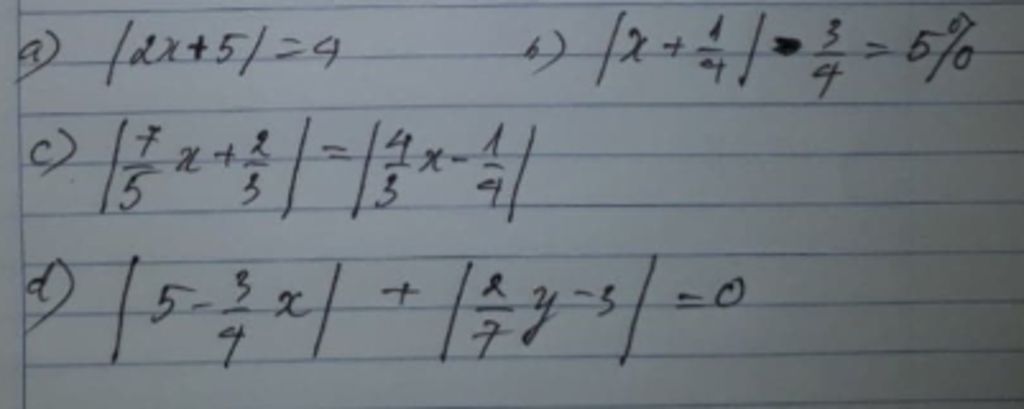 a) |2x+5| = 4 b) |x + 1/4| - 3/4 = 5%
c) |7/5 x + 2/3| = |4/3 x - 1/4|
d) |5 - 3/4 x| + |2/7 y - 3| = 0